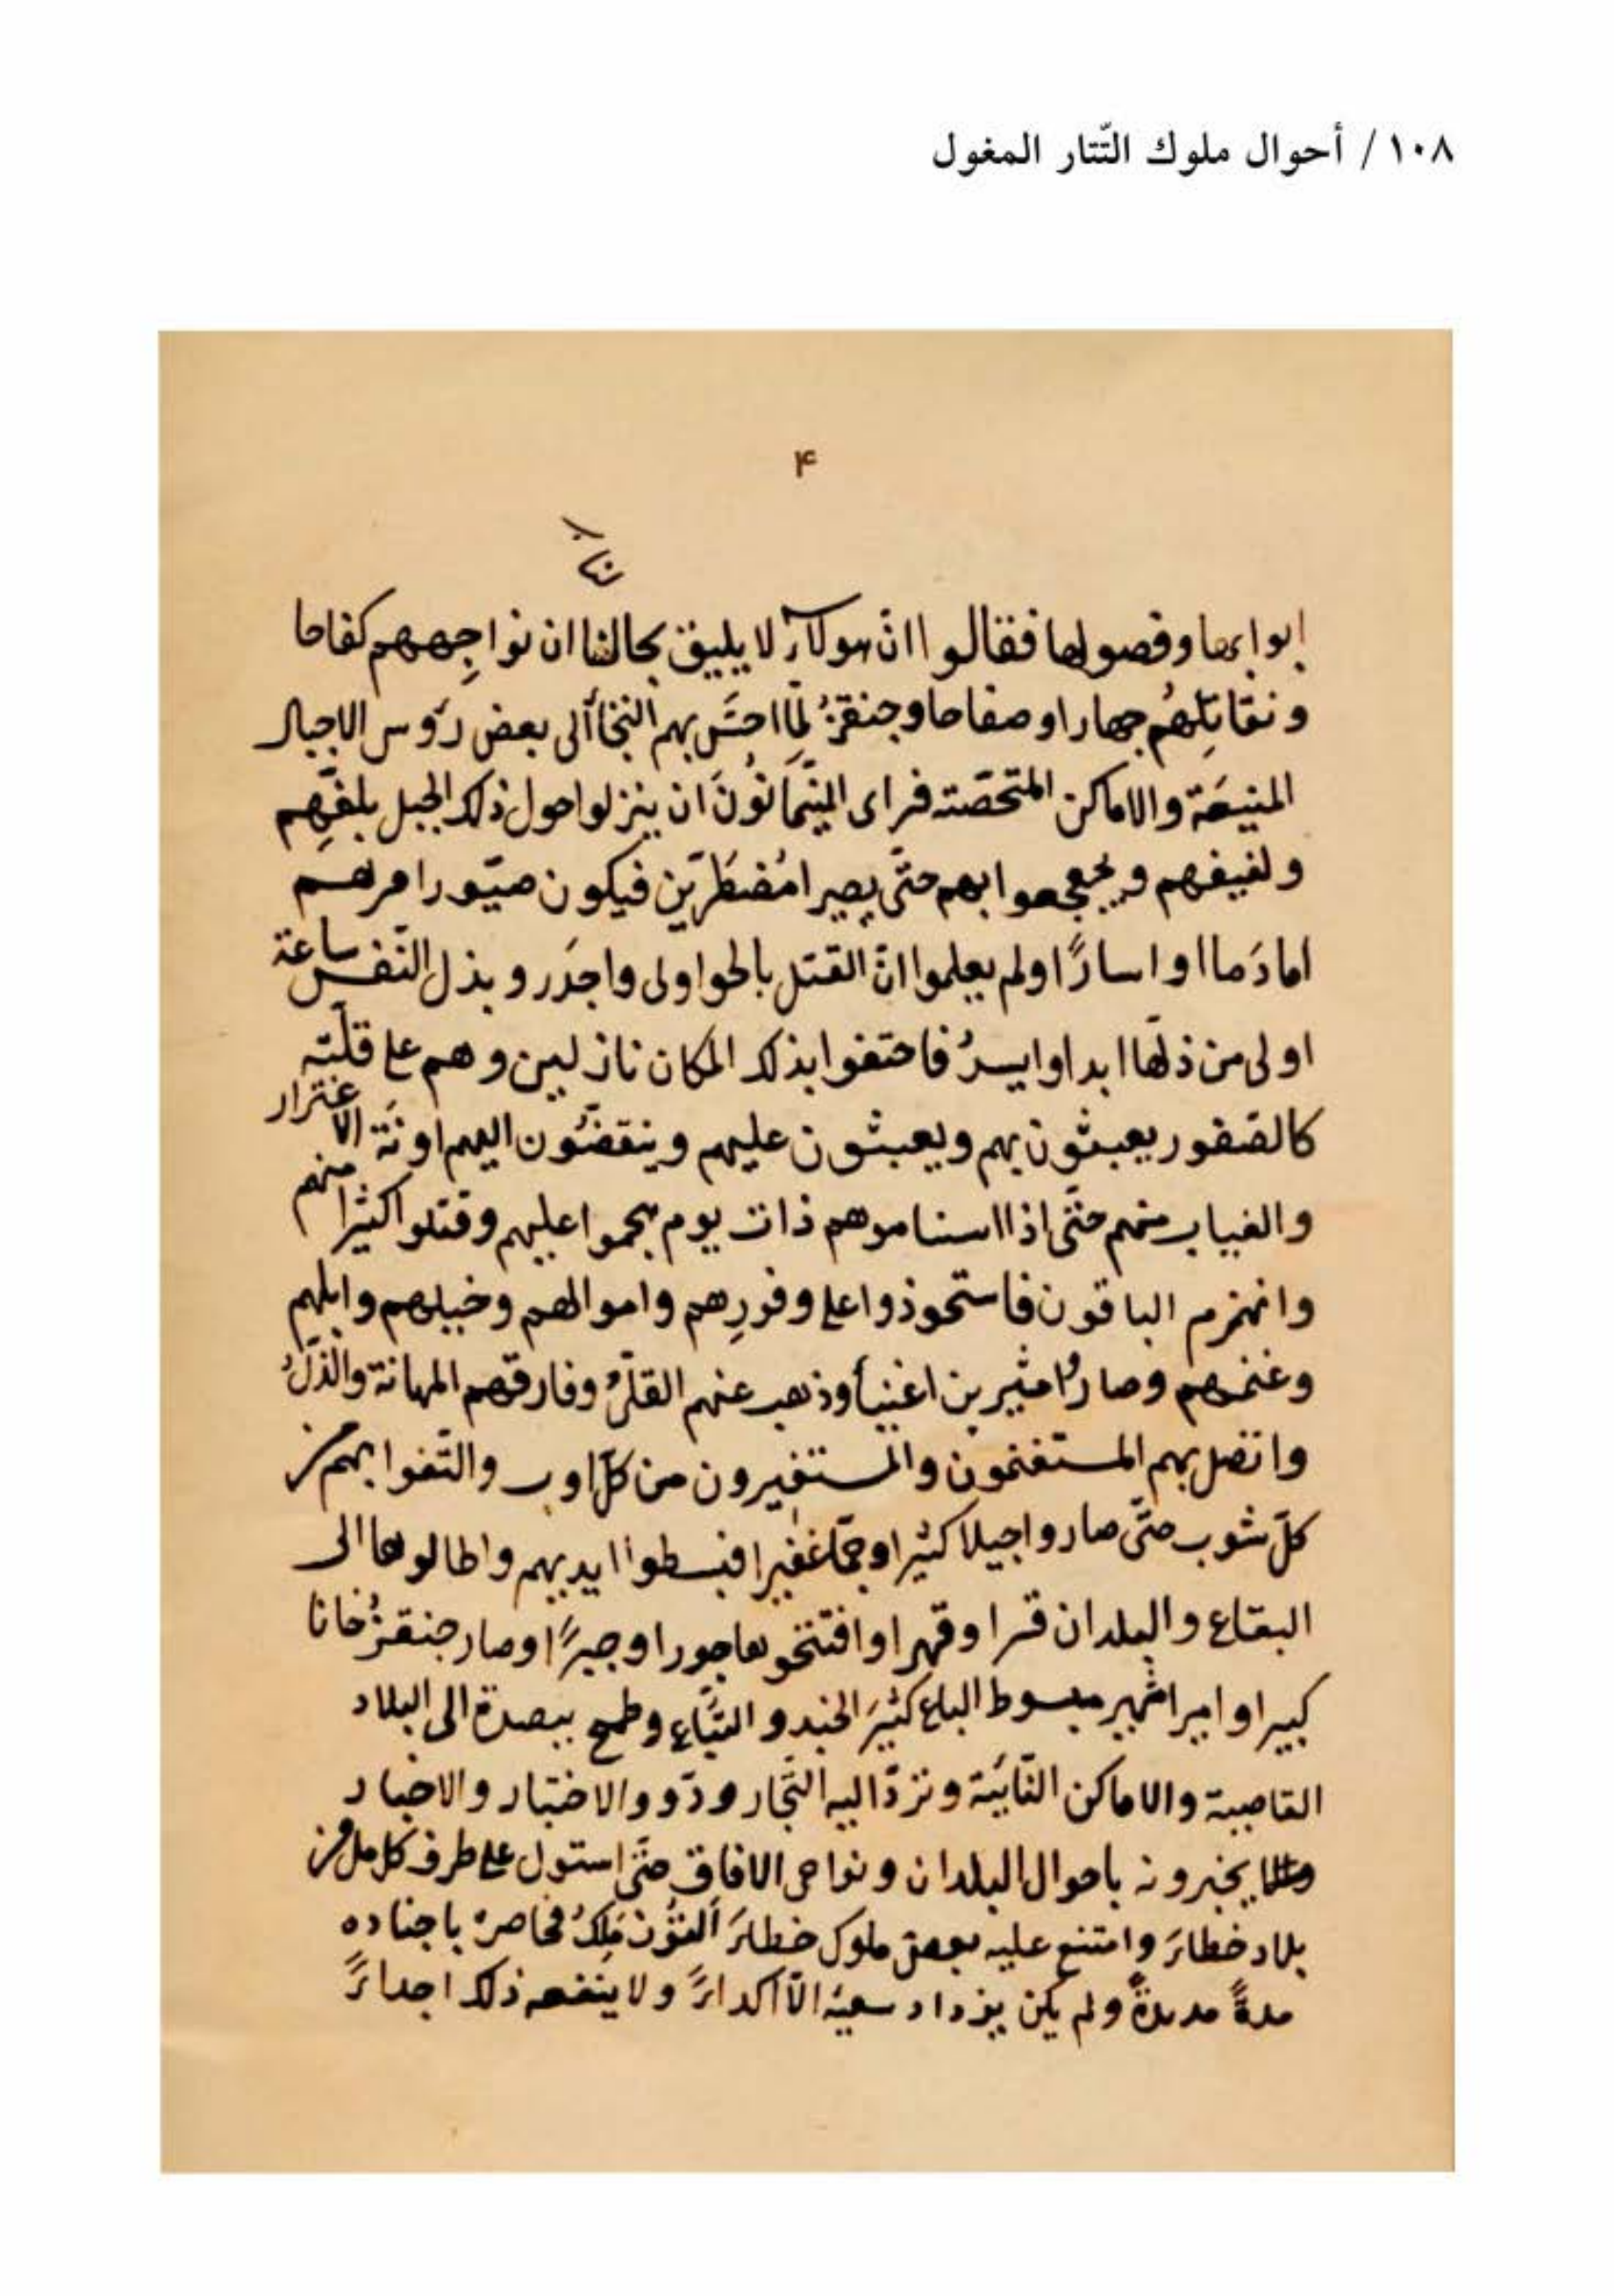 ١٠٨ / أحوال ملوك التّتار المغول
۴
ابوابها وفصولها فقالوا انّ هولاء لا يليق بحالنا ان نواجِههم كفاحا
ونقاتِلهُم جهارا وصفاحا وجنقزُ لمّا احسَّ بهم التجأ الى بعض رؤس الاجبال
المنيعَة والاماكن المتحصّنه فراى ان ينزلوا حول ذلك الجبل بلفّهِم
ولفيفهم ويجعجعوا بهم حتّى يصيرا مُضطَرّين فيكون صيّور امرهم
اما دَما او اسارًا ولم يعلموا انّ القتل بالحر اولى واجدَر وبذل النّفس ساعة
اولى من ذلّها ابدا وايسرُ فاحتفوا بذلك المكان نازلين وهم على قلّته
كالصّقور يعبثون بهم ويعبثون عليهم وينقضّون اليهم اونَة الاغترار
والغياب منهم حتّى اذا اسناموهم ذات يوم هجموا عليهم وقتلوا كثيرا منهم
وانهزم الباقون فاستحوذوا على وفورِهم واموالهم وخيلهم وابلهم
وغنمهم وصاروا مثيرين اغنيأ وذهب عنهم القلّ وفارقهم المهانة والذّلُ
واتصل بهم المستغنمون والمستغيرون من كلّ اوب والتّفوا بهم من
كلّ شوب حتّى صاروا جيلا كثيرا وجمّا غفيرا فبسطوا ايديهم واطالوها الى
البقاع والبلدان قسرا وقهرا وافتتحوها جورا وجبرًا وصار جنقزُ خانا
كبيرا واميرا شهير مبسوط الباع كثيرَ الجند والتبّاع وطمح ببصرة الى البلاد
القاصية والاماكن النّائيَة وتردّ اليه التّجار وذوو الاختبار والاخبار
يخبرونه باحوال البلدان ونواحى الافاق حتّى استول على طرف كامل من
بلاد خطاىَ وامتنع عليه بعض ملوك خطاىَ مَلِكُ فحاصرهُ باجناده
مدةً مديدةً ولم يكن يزداد سعيُه الّا اكداىً ولا ينفعه ذلك اجداىً